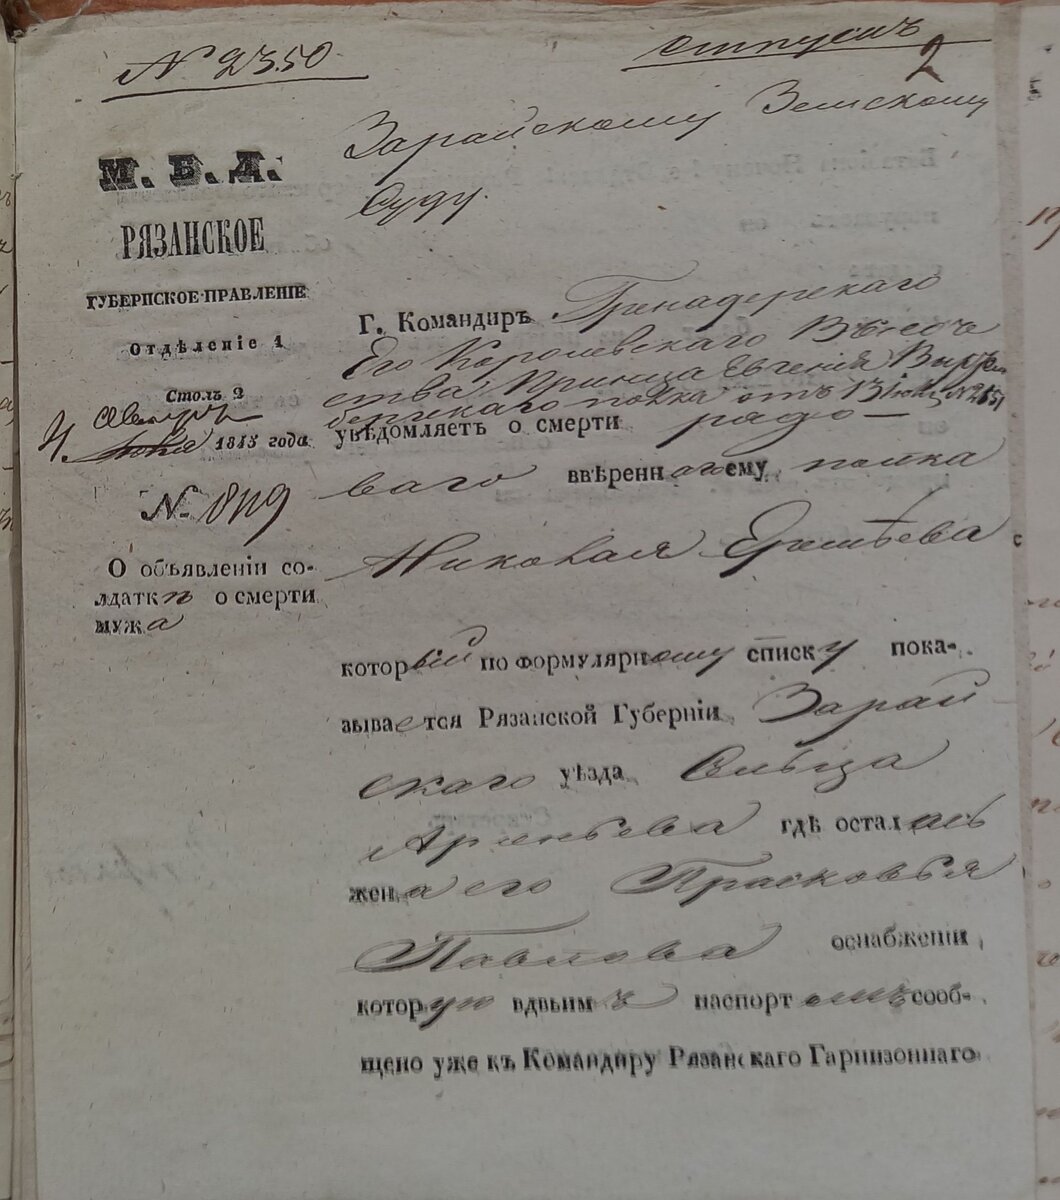 № 2350
отпускъ
2
Зарайскому Земскому
Суду.
М. В. Д.
РЯЗАНСКОЕ
ГУБЕРНСКОЕ ПРАВЛЕНІЕ
Отдѣленіе 1
Столъ 2
4. Августа
Іюля 1845 года
О объявленіи со-
лдаткѣ о смерти
мужа
Г. Командиръ Гренадерскаго
Его Королевскаго Высоче
ства Принца Евгенія Виртем
бергскаго полка отъ 13 Іюля №
увѣдомляетъ о смерти рядо-
ваго ввѣренногоему полка
Николая
который по формулярному списку пока-
зывается Рязанской Губерніи, Зарай
скаго уѣзда Сельца
Арсеньева гдѣ осталась
жена его Прасковья
Павлова оснабженіи
которую вдвьимъ паспортомъ сооб-
щено уже къ Командиру Рязанскаго Гарнизоннаго